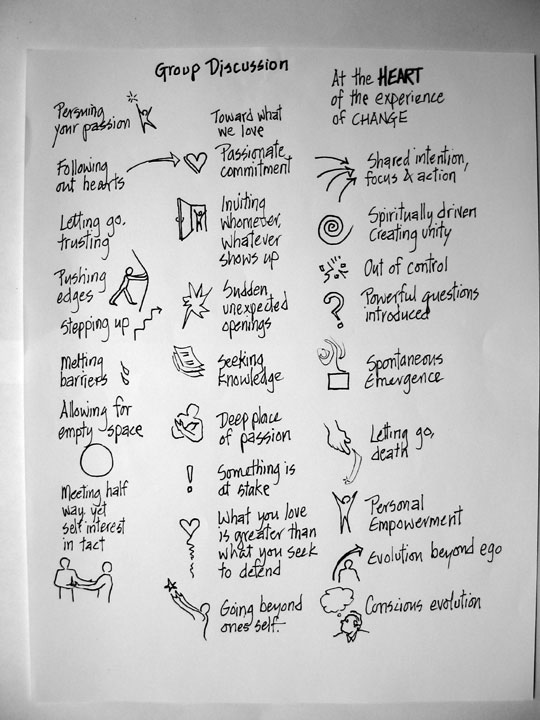 Group Discussion
Persuing
your passion
Following
out hearts
Letting go,
trusting
Pushing
edges
Stepping up
Melting
barriers
Allowing for
empty space
Meeting half
way, yet
self interest
in tact
Toward what
we love
Passionate
commitment
Inviting
whomever,
whatever
shows up
Sudden,
unexpected
openings
Seeking
Knowledge
Deep place
of passion
!
Something is
at stake
What you love
is greater than
what you seek
to defend
Going beyond
ones self.
At the HEART
of the experience
of CHANGE
Shared intention,
focus & action
Spiritually driven
Creating unity
Out of control
?
Powerful questions
introduced
Spontaneous
Emergence
Letting go,
death
Personal
Empowerment
Evolution beyond ego
Conscious evolution